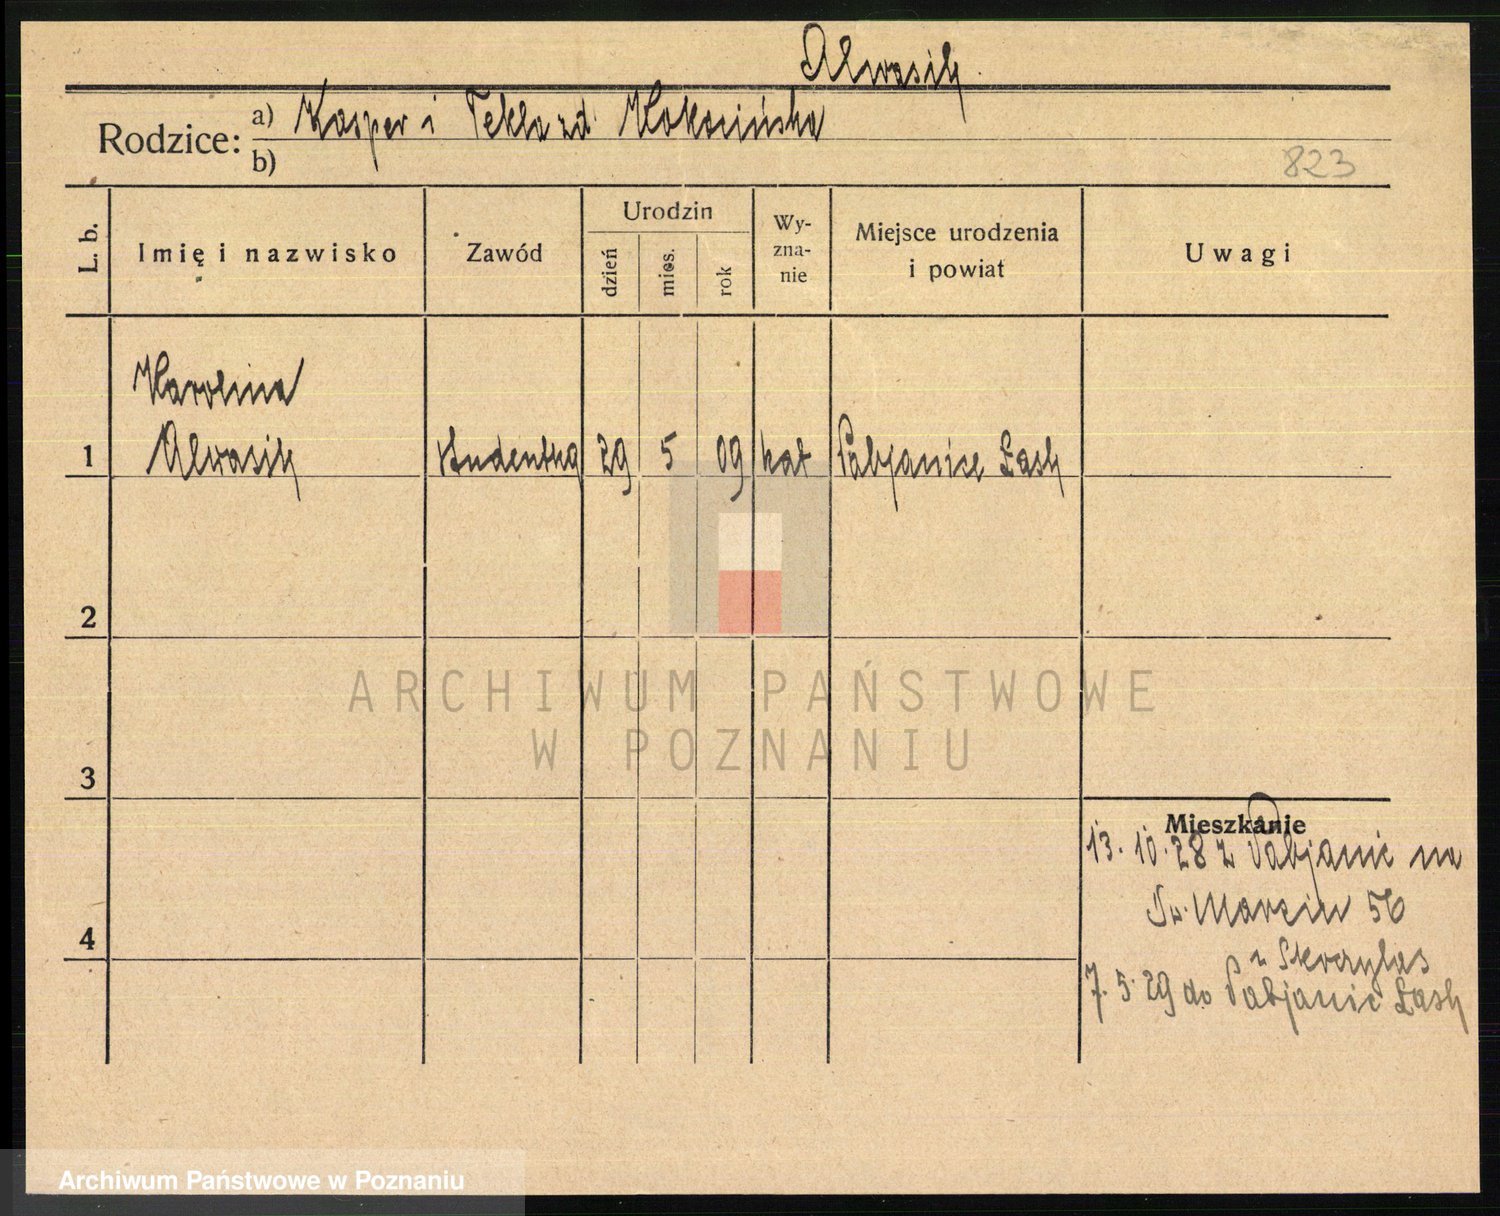 Alwasik
Rodzice: a) Kasper i Tekla zd. Kokocińska
b)
823
L. b.
Imię i nazwisko
Zawód
Urodzin
dzień
mies.
rok
Wy-
zna-
nie
Miejsce urodzenia
i powiat
Uwagi
Karolina
1 Alwasik studentka 29 5 09 kat Pabjanice Łask
2
ARCHIWUM PAŃSTWOWE
W POZNANIU
3
Mieszkanie
13. 10. 28 z Pabjanic na
Św. Marcin 56
4
z Skorzyłas
7. 5. 29 do Pabjanic Łask
Archiwum Państwowe w Poznaniu